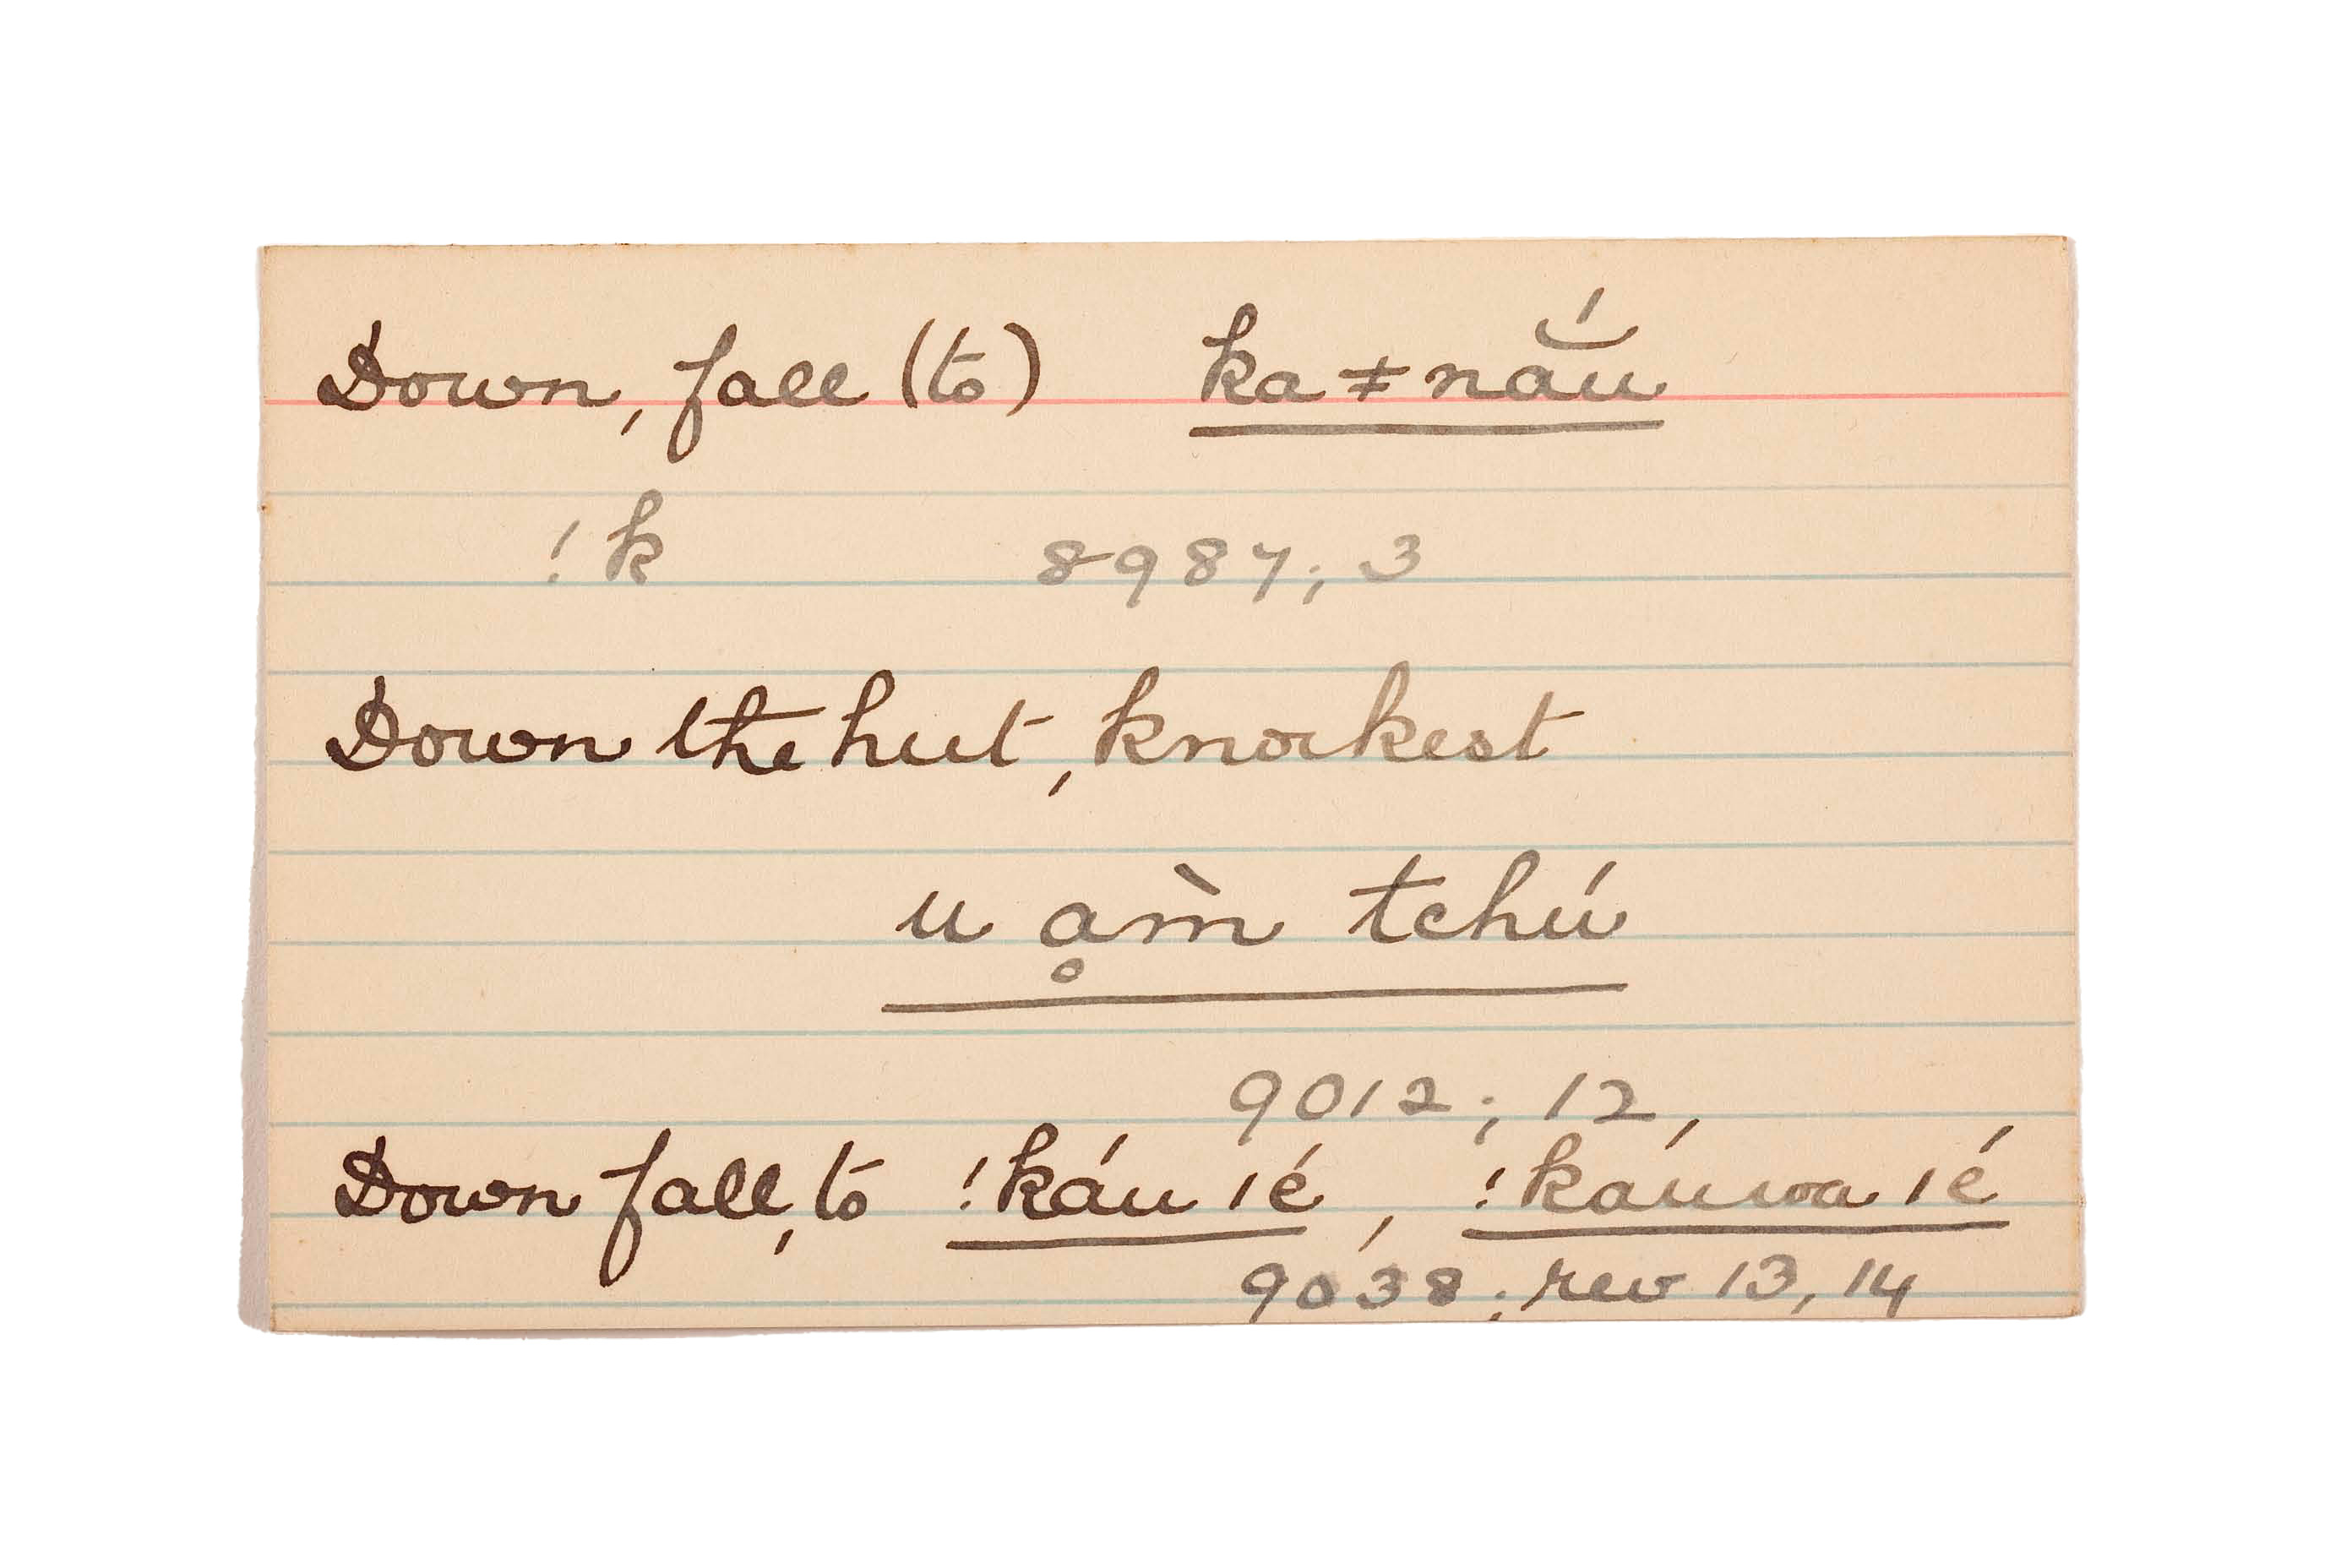 Down, fall (to) ka ǂ nắu
!k 8987; 3
Down the hut, knockest
u ḁm̀ tchú
9012; 12,
Down fall, to !káu ǀé, !káuwa ǀé
9038; rev 13, 14